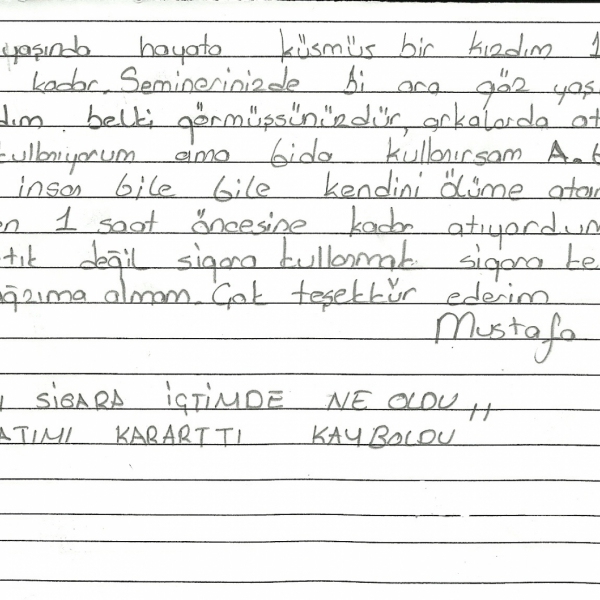 yaşında hayata küsmüs bir kızdım 1
kadar. Seminerinizde bi ara göz yaş
dım belki görmüşsünüzdür, arkalarda ot
kullanıyorum ama bida kullanırsam A.
insan bile bile kendini ölüme atar
en 1 saat öncesine kadar atıyordum
tık değil sigara kullanmak sigara ke
ağzıma almam. Çok teşekkür ederim
Mustafa
SİGARA İÇTİMDE NE OLDU,,
ATIMI KARARTTI KAYBOLDU